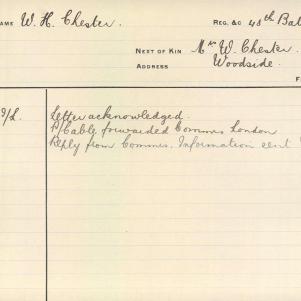 NAME W. H. Chester. REG. &C 48th Bat
NEXT OF KIN Mr W. Chester.
ADDRESS Woodside.
F
/L. Letter acknowledged.
P/Cable forwarded Commrs London
Reply from Commrs. Information sent